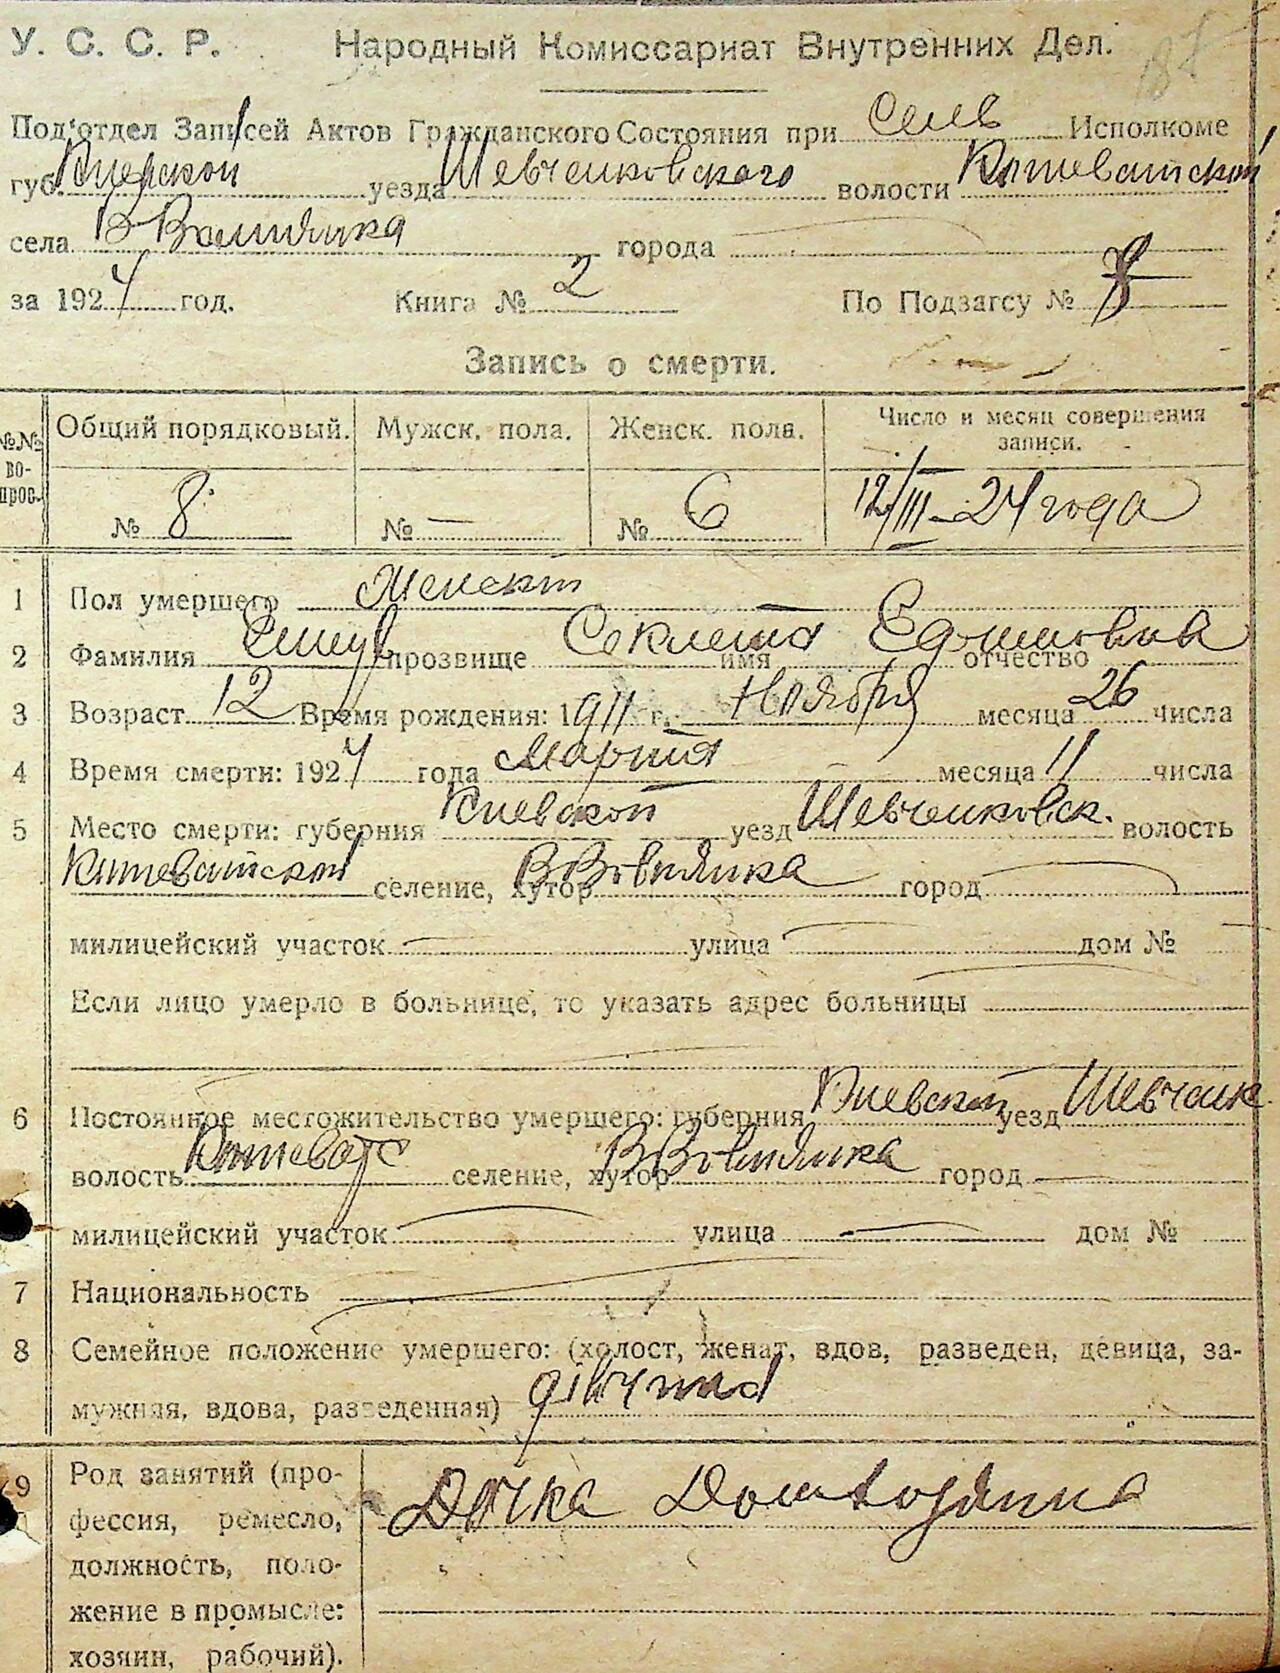 У. С. С. Р. Народный Комиссариат Внутренних Дел.
Под‘отдел Записей Актов Гражданского Состояния при Сель Исполкоме
губ. Киевской уезда Шевченковского волости Кошеватской
села В Вовнянка города
за 1924 год. Книга № 2 По Подзагсу № 8
Запись о смерти.
№№ вопрос. Общий порядковый. Мужск. пола. Женск. пола. Число и месяц совершения записи.
№ 8 № — № 6 12/III-24 года
1 Пол умершего Женский
2 Фамилия прозвище Секлета имя отчество
3 Возраст 12 Время рождения: 1911 г. Ноября месяца 26 числа
4 Время смерти: 1924 года Марта месяца 11 числа
5 Место смерти: губерния Киевской уезд Шевченковск. волость
Кошеватской селение, хутор В Вовнянка город
милицейский участок улица дом №
Если лицо умерло в больнице, то указать адрес больницы
6 Постоянное местожительство умершего: губерния Киевской уезд Шевченк
волость Кошеватс селение, хутор В Вовнянка город —
милицейский участок улица — дом №
7 Национальность
8 Семейное положение умершего: (холост, женат, вдов, разведен, девица, за-
мужняя, вдова, разведенная) дівчина
9 Род занятий (про- Дочка Домохозяина
фессия, ремесло,
должность, поло-
жение в промысле:
хозяин, рабочий).